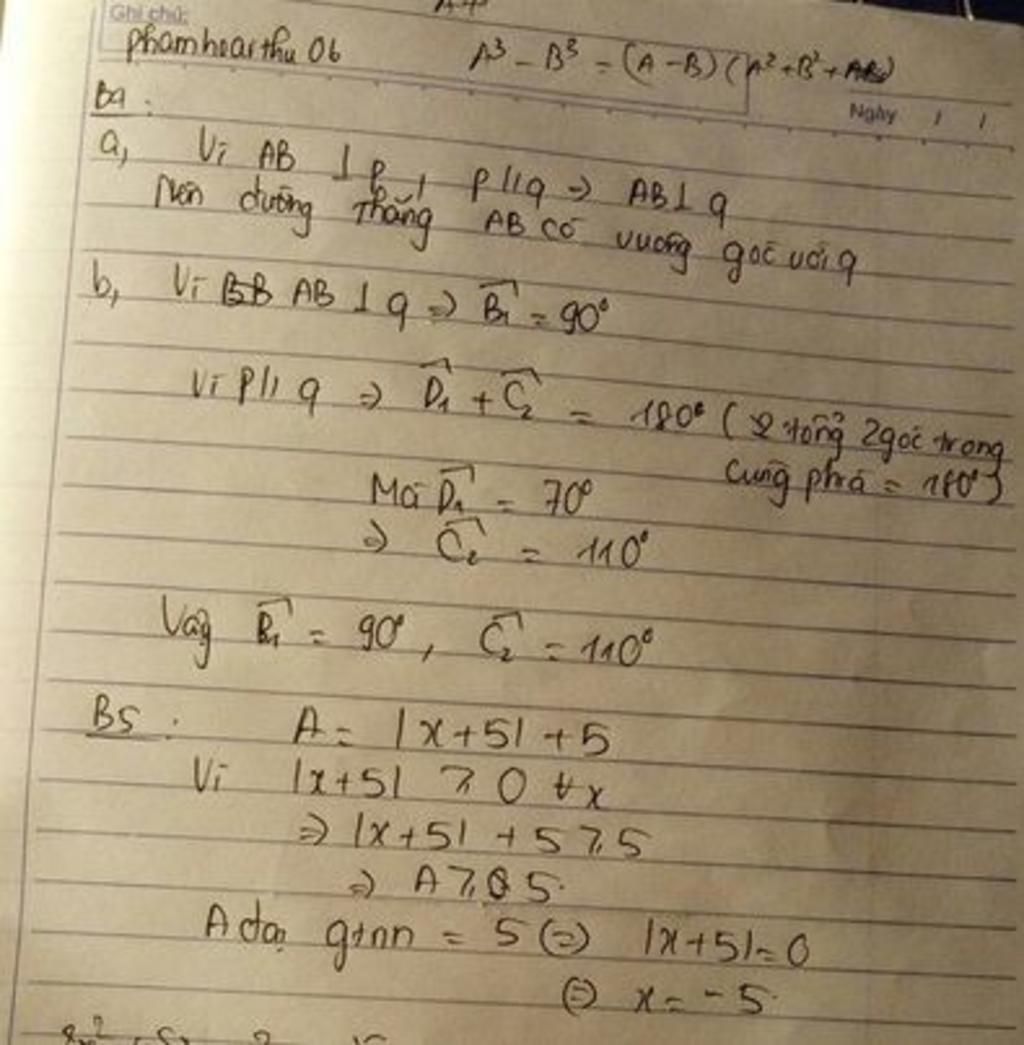 Ghi chú:
phamhoaithu06
A³ - B³ = (A - B)(A² + B² + AB)
Ngày / /
B4:
a, Vì AB ⊥ p, p // q ⇒ AB ⊥ q
Nên đường thẳng AB có vuông góc với q
b, Vì AB ⊥ q ⇒ B̂₁ = 90°
Vì p // q ⇒ D̂₁ + Ĉ₂ = 180° (tổng 2 góc trong
cùng phía = 180°)
Mà D̂₁ = 70°
⇒ Ĉ₂ = 110°
Vậy B̂₁ = 90°, Ĉ₂ = 110°
B5: A = |x + 5| + 5
Vì |x + 5| ⩾ 0 ∀x
⇒ |x + 5| + 5 ⩾ 5
⇒ A ⩾ 5.
A đạt gtnn = 5 ⇔ |x + 5| = 0
⇔ x = -5